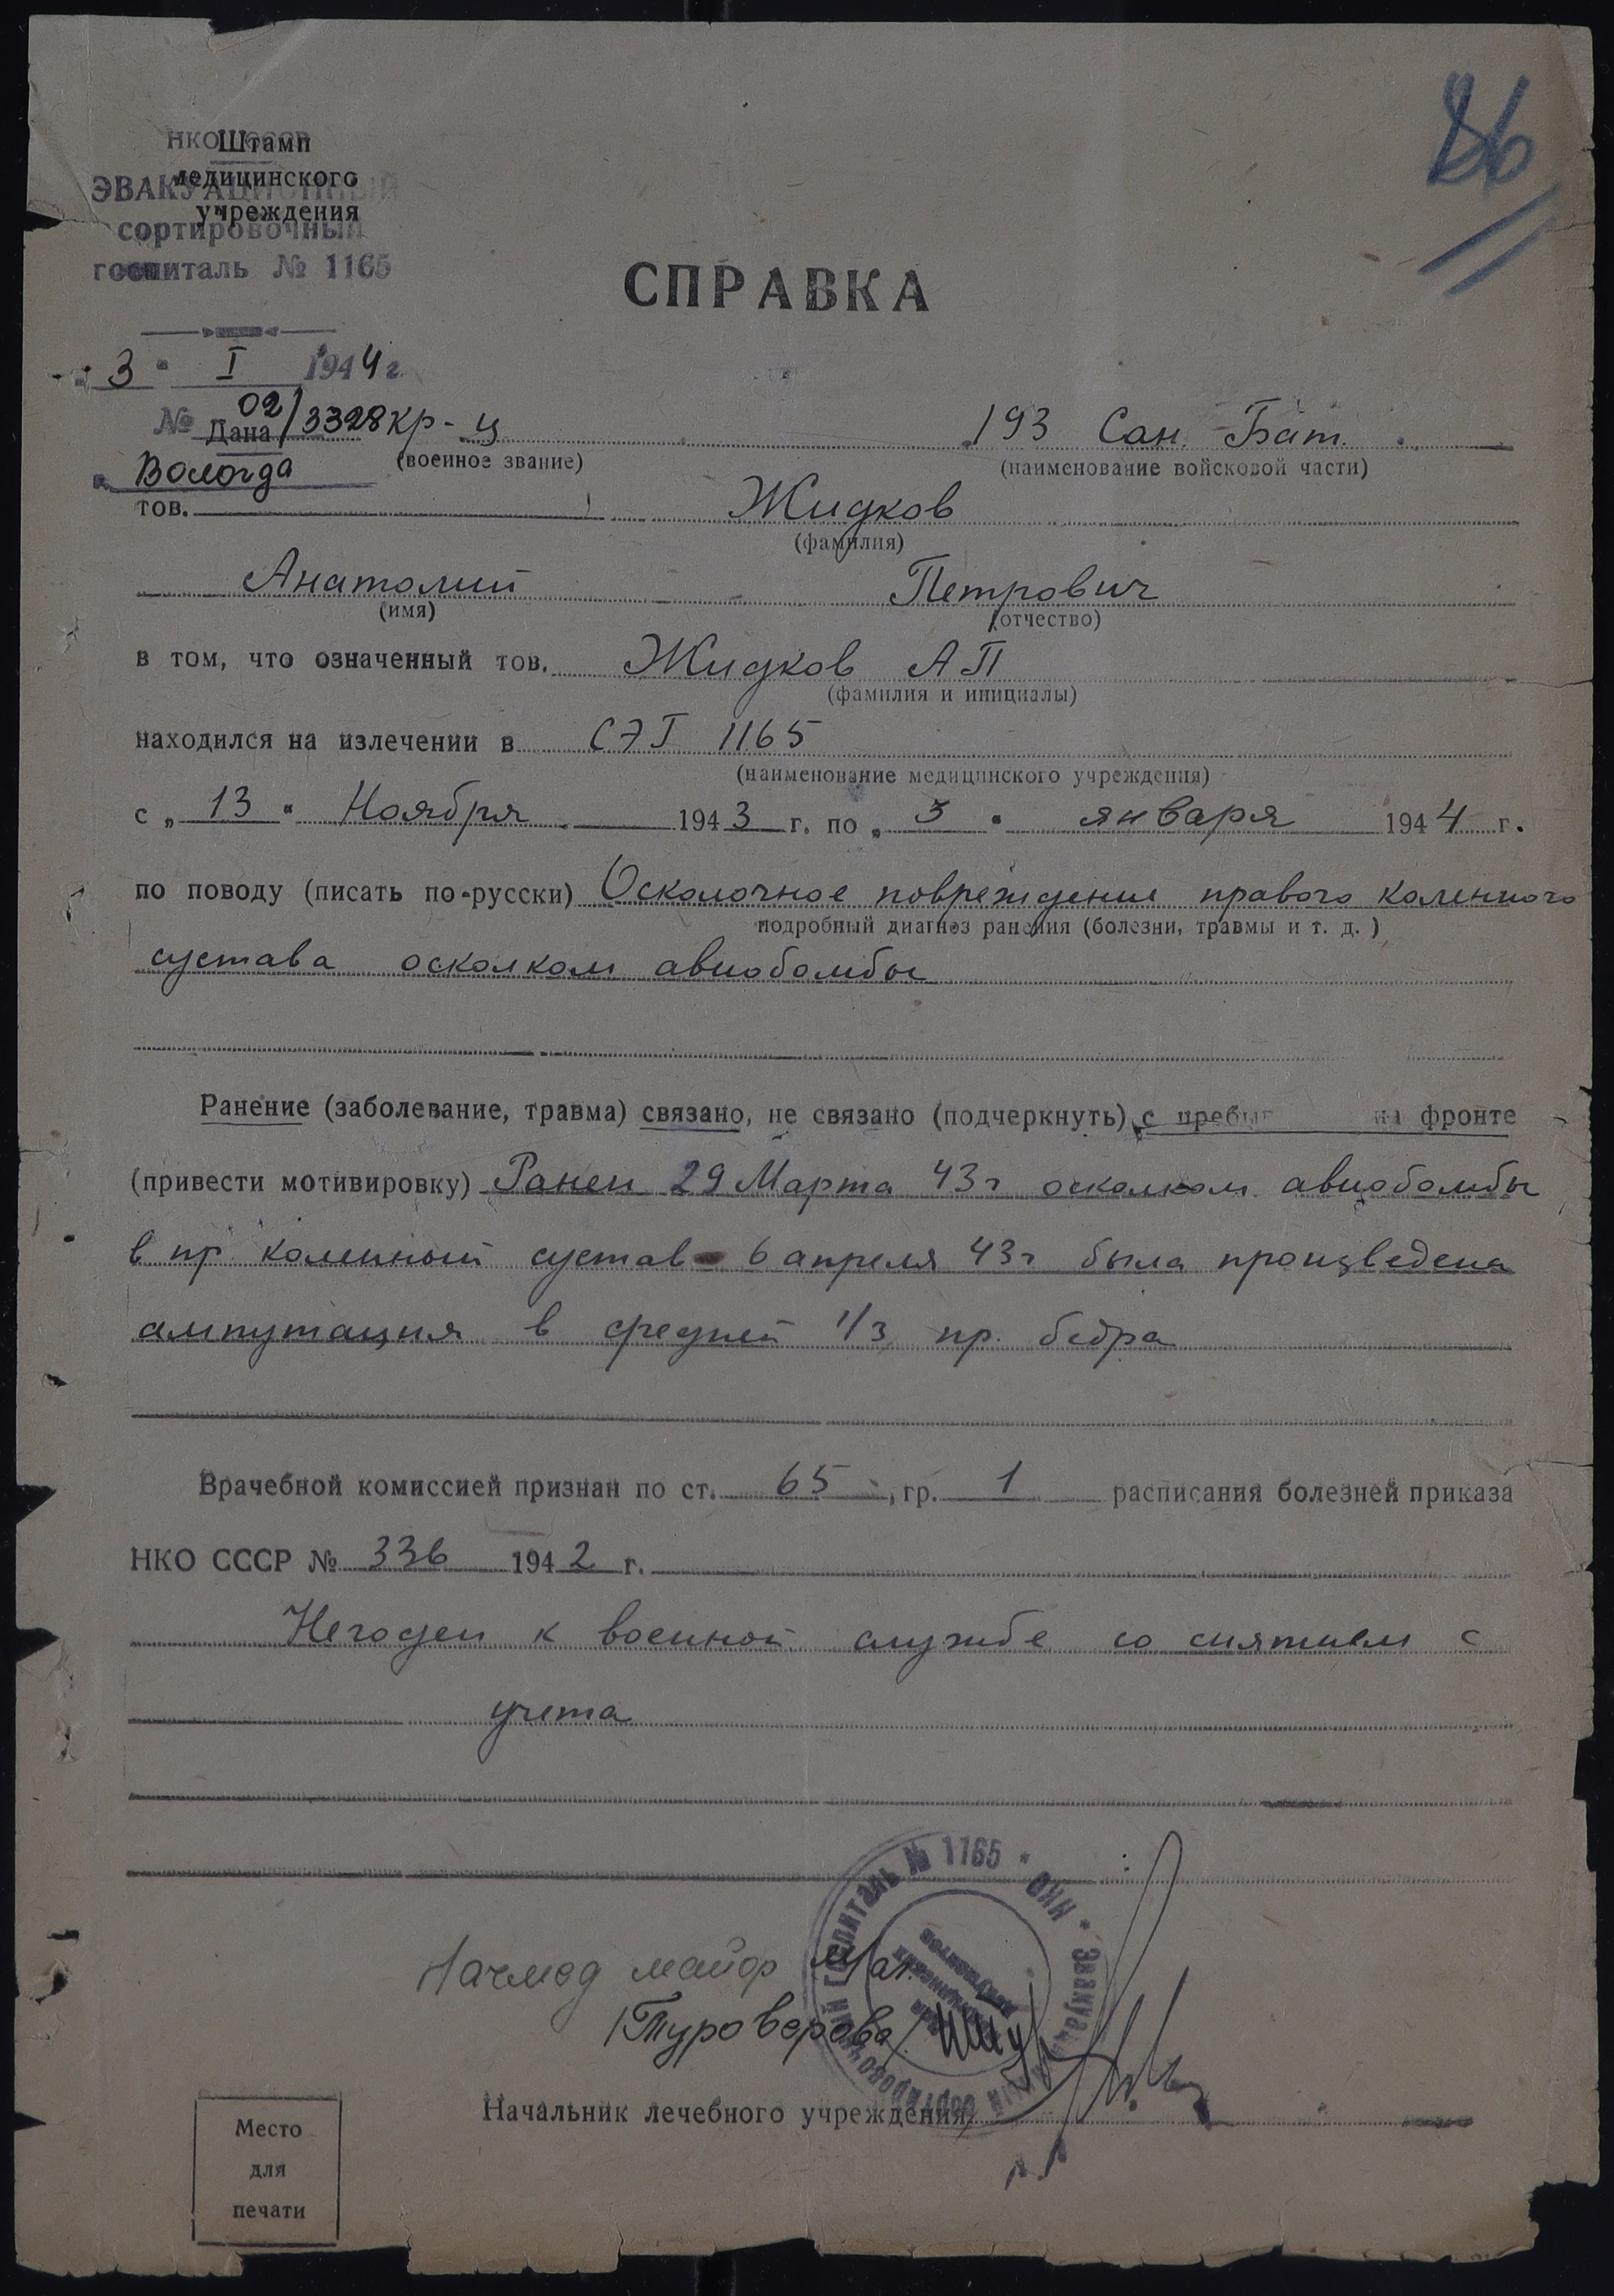 86
НКО СССР
Штамп
медицинского
учреждения
ЭВАКУАЦИОННЫЙ
сортировочный
госпиталь № 1165
СПРАВКА
„ 3 " I 1944 г.
№ 02/3328
Дана кр-ц 193 Сан. Бат.
(военное звание) (наименование войсковой части)
г. Вологда
тов. Жидков
(фамилия)
Анатолий Петрович
(имя) (отчество)
в том, что означенный тов. Жидков А П
(фамилия и инициалы)
находился на излечении в СЭГ 1165
(наименование медицинского учреждения)
с „ 13 " Ноября 1943 г. по „ 3 " января 1944 г.
по поводу (писать по-русски) Осколочное повреждение правого коленного
подробный диагноз ранения (болезни, травмы и т. д. )
сустава осколком авиобомбы
Ранение (заболевание, травма) связано, не связано (подчеркнуть) с на фронте
(привести мотивировку) Ранен 29 Марта 43 г осколком авиобомбы
в пр коленный сустав 6 апреля 43 г была произведена
ампутация в средней 1/3 пр. бедра
Врачебной комиссией признан по ст. 65, гр. 1 расписания болезней приказа
НКО СССР № 336 1942 г.
Негоден к военной службе со снятием с
учета
Начмед майор
/Туроверова/
госпиталь № 1165 * НКО *
Начальник лечебного учреждения
Место
для
печати